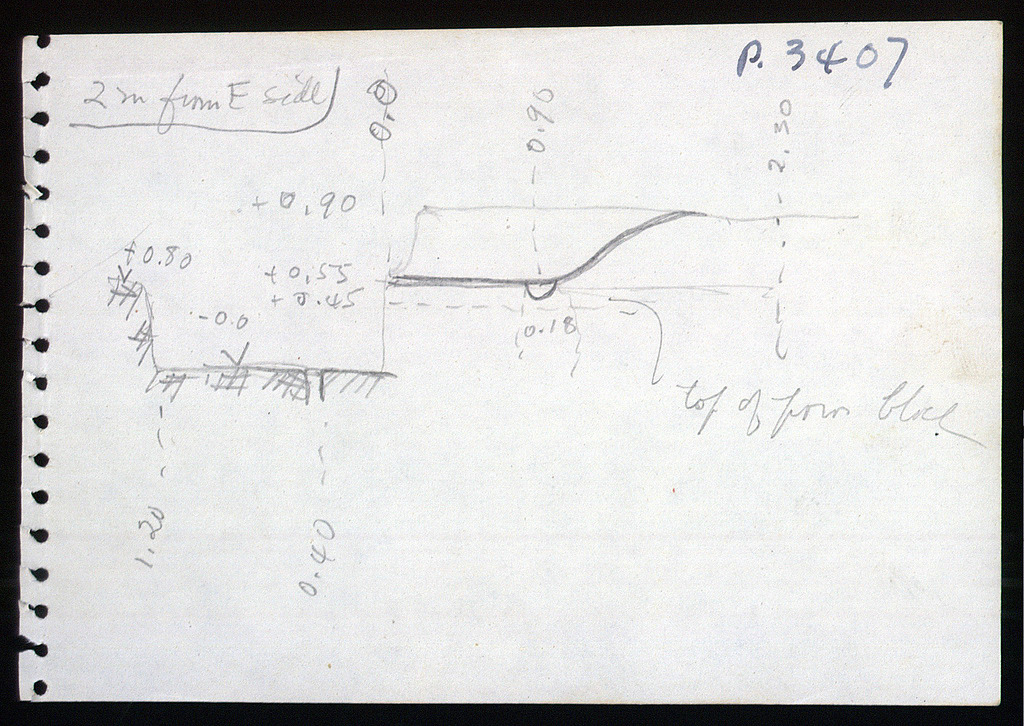 P. 3407
2 m from E side
0.0
-0.90
-2.30
+0.90
+0.80
+0.55
+0.45
-0.0
0.18
top of
1.20
0.40